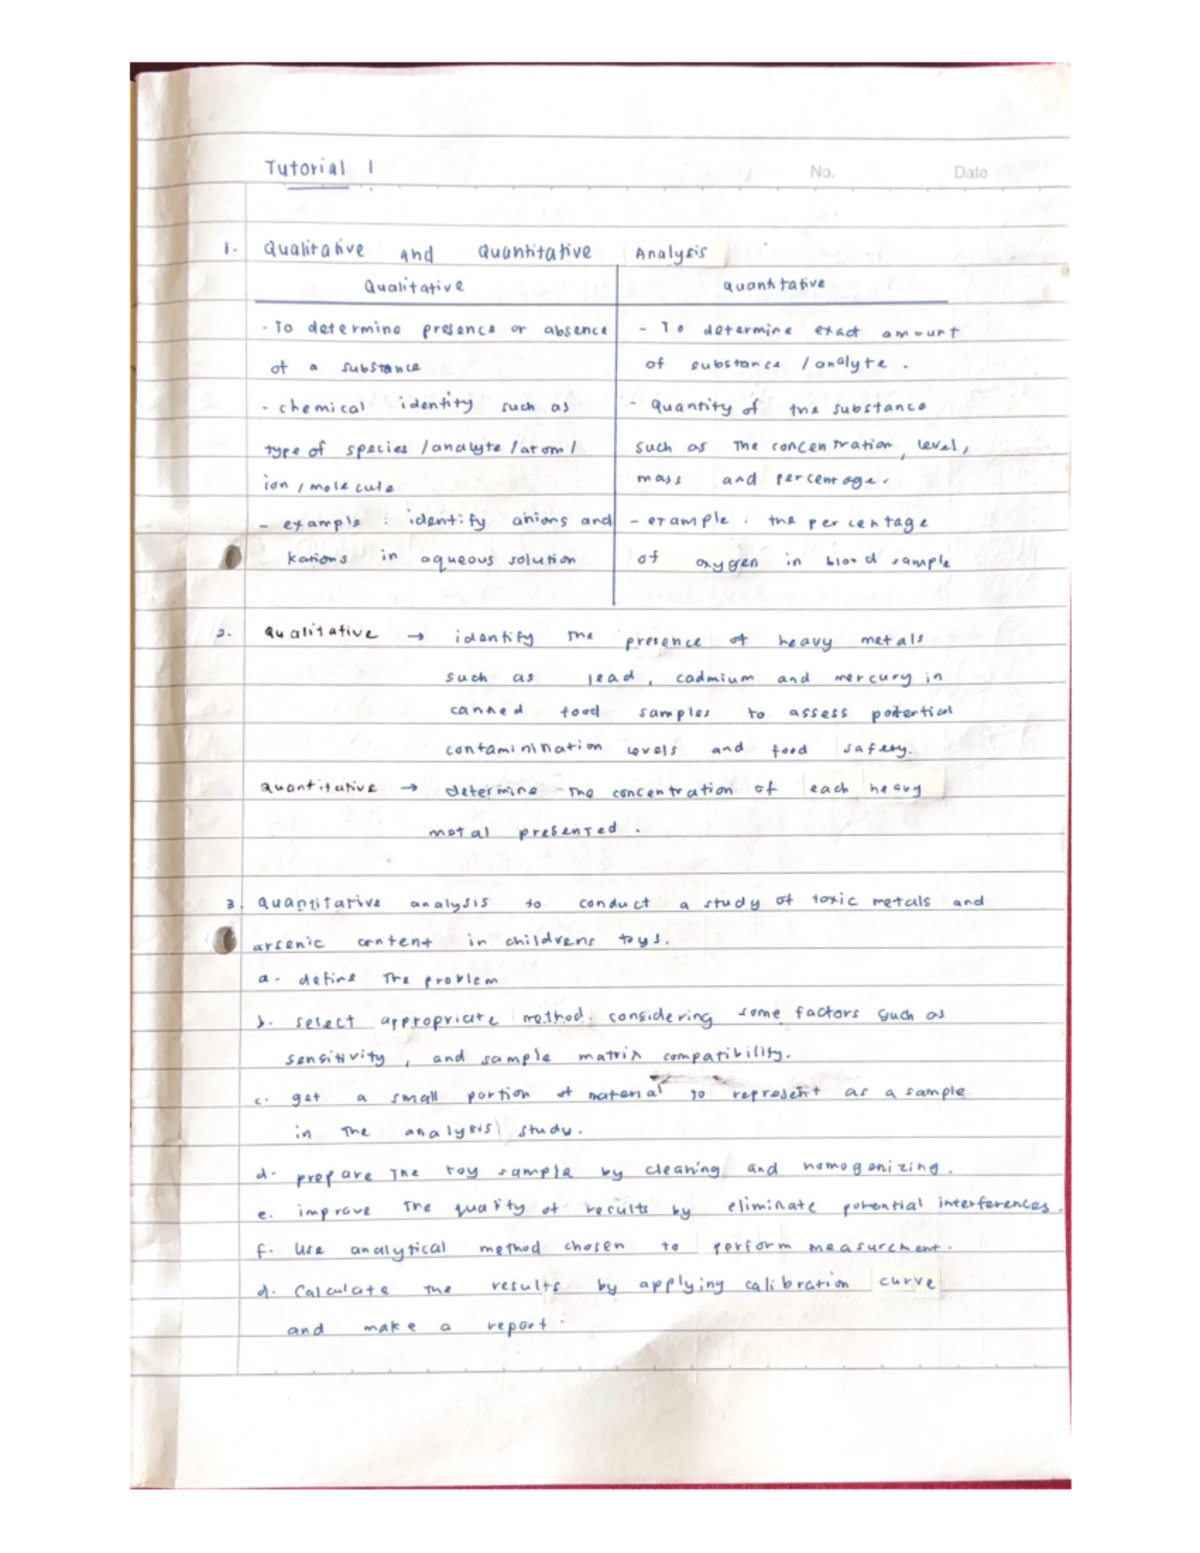 Tutorial 1
No. Date
1. Qualitative and Quantitative Analysis
Qualitative quantitative
- To determine presence or absence
of a substance
- chemical identity such as
type of species / analyte / atom /
ion / molecule
- example : identify anions and
kations in aqueous solution
- To determine exact amount
of substance / analyte .
- Quantity of the substance
such as the concentration, level,
mass and percentage.
- example : the percentage
of oxygen in blood sample
2. Qualitative → identify the presence of heavy metals
such as lead, cadmium and mercury in
canned food samples to assess potential
contaminination levels and food safety.
Quantitative → determine the concentration of each heavy
metal presented .
3. quantitative analysis to conduct a study of toxic metals and
arsenic content in childrens toys.
a. define the problem
b. select appropriate method considering some factors such as
sensitivity , and sample matrix compatibility.
c. get a small portion of material to represent as a sample
in the analysis study.
d. prepare the toy sample by cleaning and homogenizing.
e. improve the quality of results by eliminate potential interferences.
f. Use analytical method chosen to perform measurement.
d. Calculate the results by applying calibration curve
and make a report.